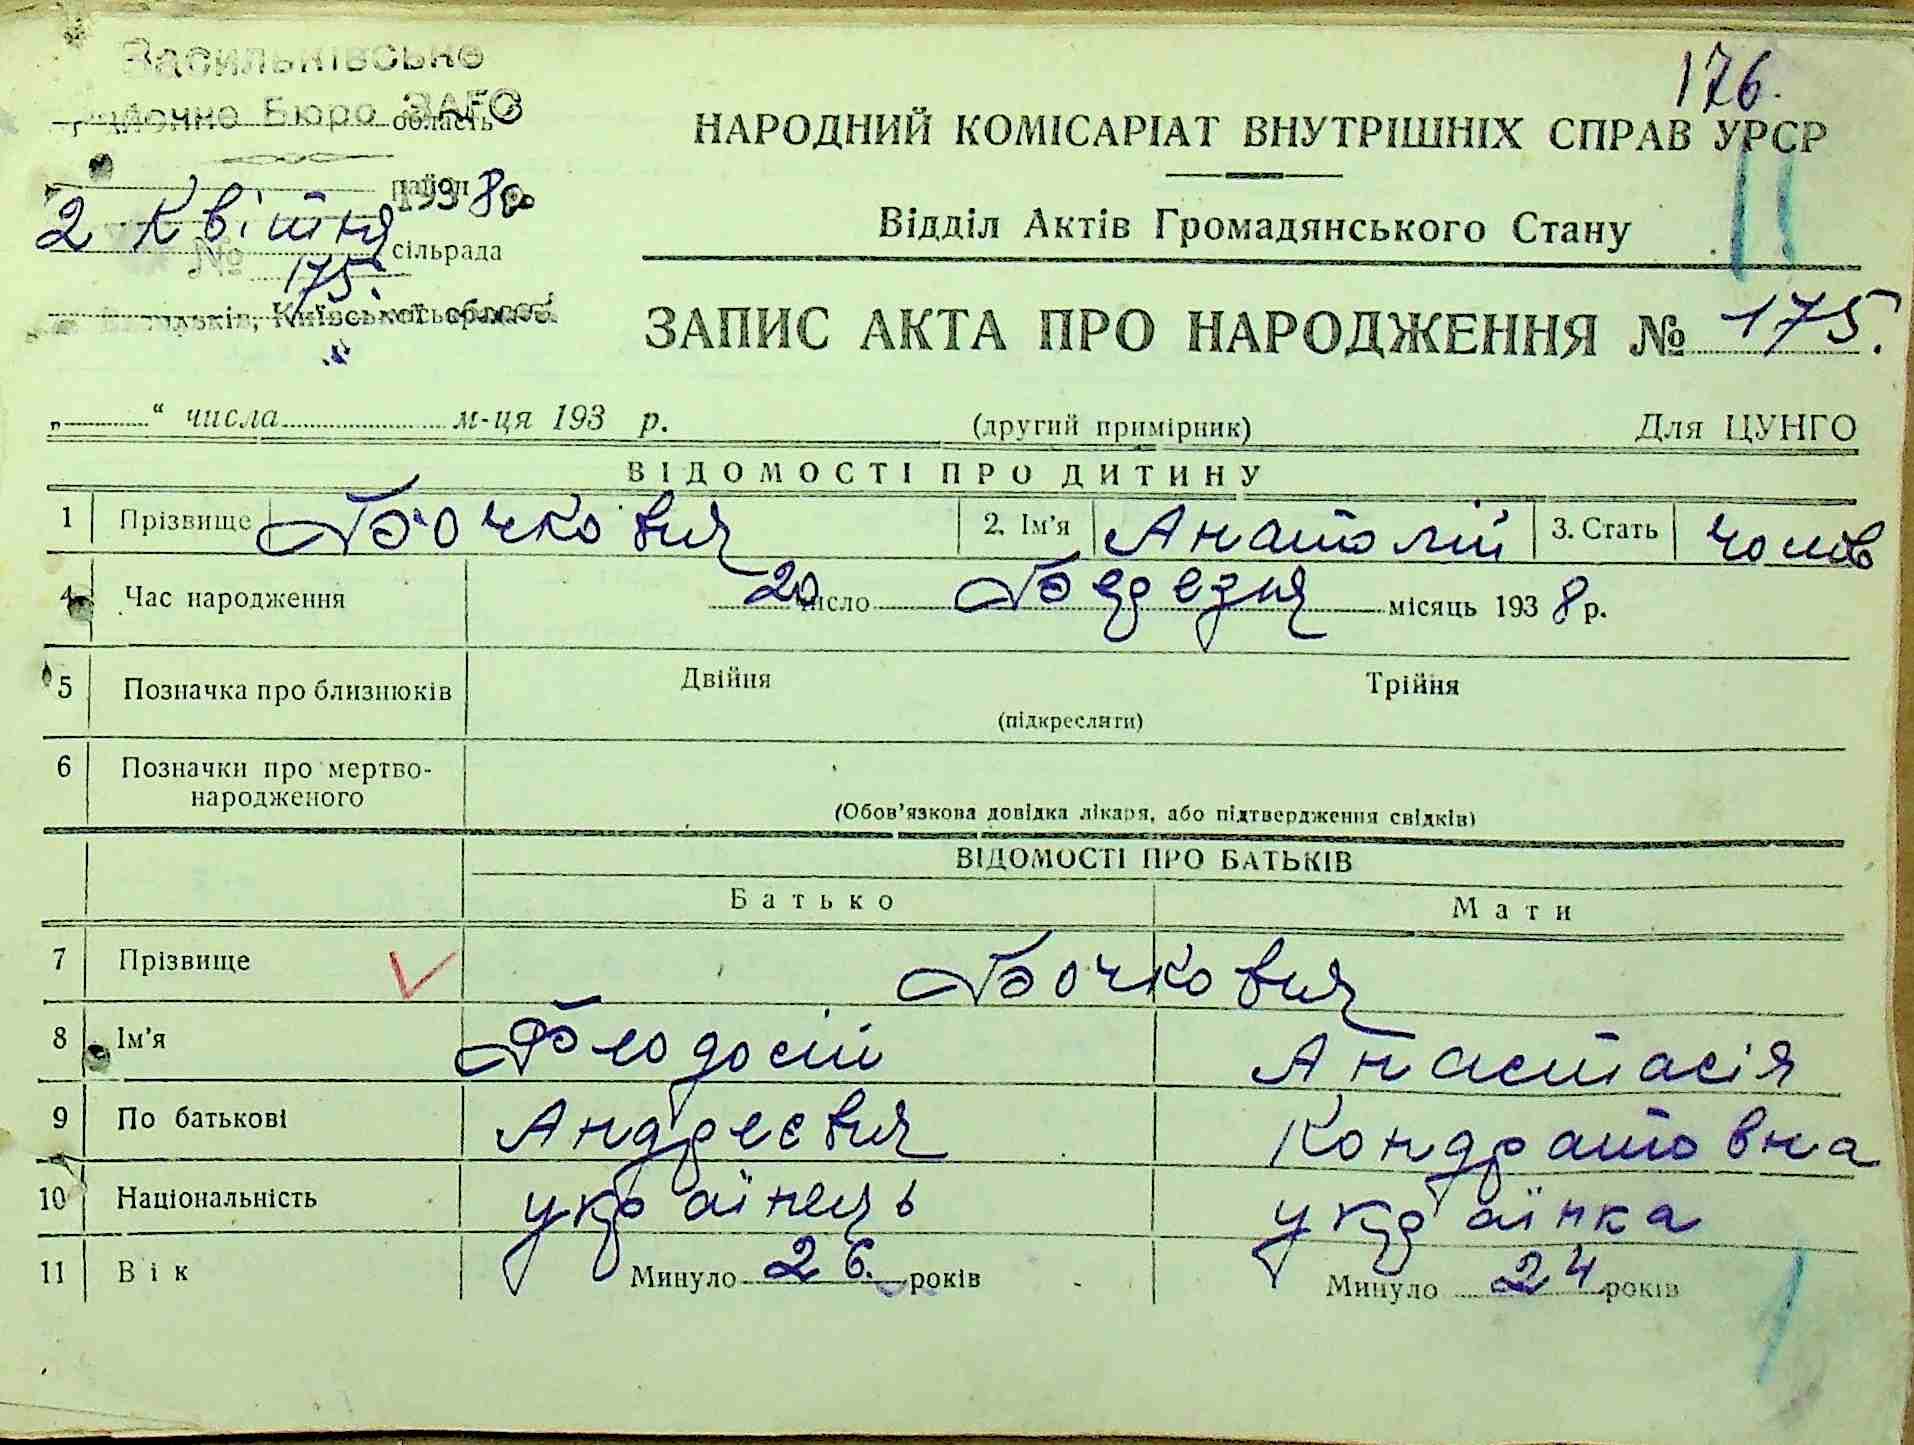 176.
Васильківське
Бюро ЗАГС
область
район 1938 р.
2 Квітня
сільрада
№ 175.
Васильків, Київської області
НАРОДНИЙ КОМІСАРІАТ ВНУТРІШНІХ СПРАВ УРСР
Відділ Актів Громадянського Стану
ЗАПИС АКТА ПРО НАРОДЖЕННЯ № 175.
„ “ числа м-ця 193 р. (другий примірник) Для ЦУНГО
ВІДОМОСТІ ПРО ДИТИНУ
1 Прізвище Бочкович 2. Ім'я Анатолій 3. Стать чолов
4 Час народження 20 число Березня місяць 1938 р.
5 Позначка про близнюків Двійня Трійня
(підкреслити)
6 Позначки про мертво-
народженого
(Обов'язкова довідка лікаря, або підтвердження свідків)
ВІДОМОСТІ ПРО БАТЬКІВ
Батько Мати
7 Прізвище Бочкович
8 Ім'я Феодосій Анастасія
9 По батькові Андреєвич Кондратовна
10 Національність українець українка
11 Вік Минуло 26. років Минуло 24 років